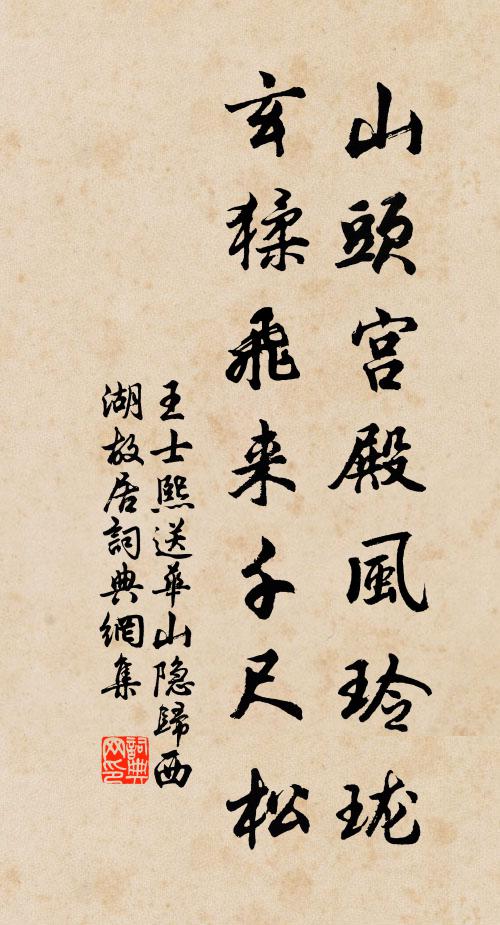 山頭宫殿風玲珑
玄猱飛来千尺松
王士熙送華山隐歸西
湖故居詞典網集
詞典
网印